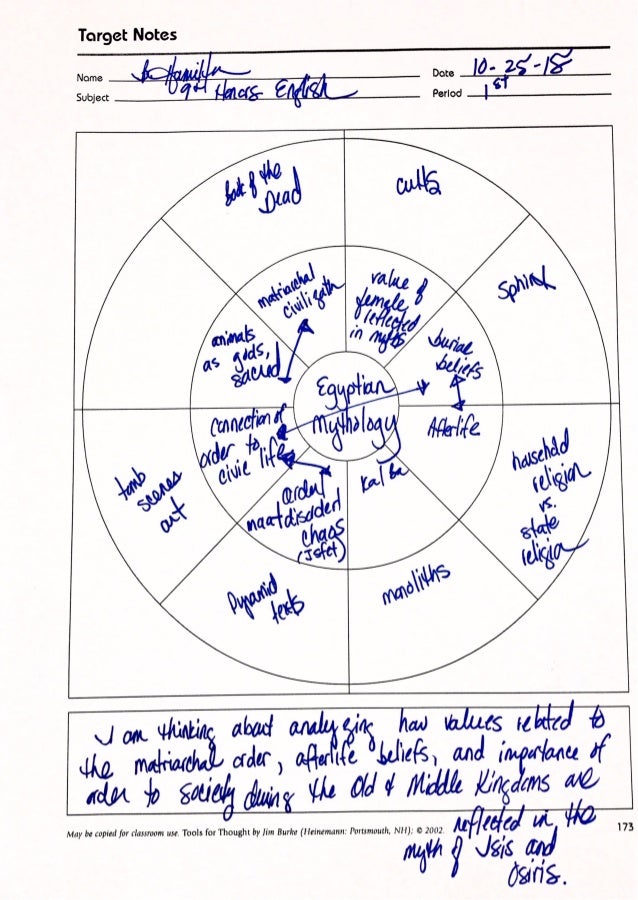 Target Notes
Name Hamilton
Date 10-25-18
Subject 9th Honors English
Period 1st
Book of the
Dead
cults
Sphinx
household
religion
vs.
state
religion
monoliths
Pyramid
texts
tomb
scenes
art
matriarchal
civilization
value of
female
reflected
in myths
burial
beliefs
Afterlife
Ka/Ba
order/
maat disorder/
chaos
(Isfet)
Connection of
order to
civic life
animals
as gods,
sacred
Egyptian
Mythology
I am thinking about analyzing how values related to
the matriarchal order, afterlife beliefs, and importance of
order to society during the Old & Middle Kingdoms are
reflected in the
myth of Isis and
Osiris.
May be copied for classroom use. Tools for Thought by Jim Burke (Heinemann: Portsmouth, NH); © 2002.
173